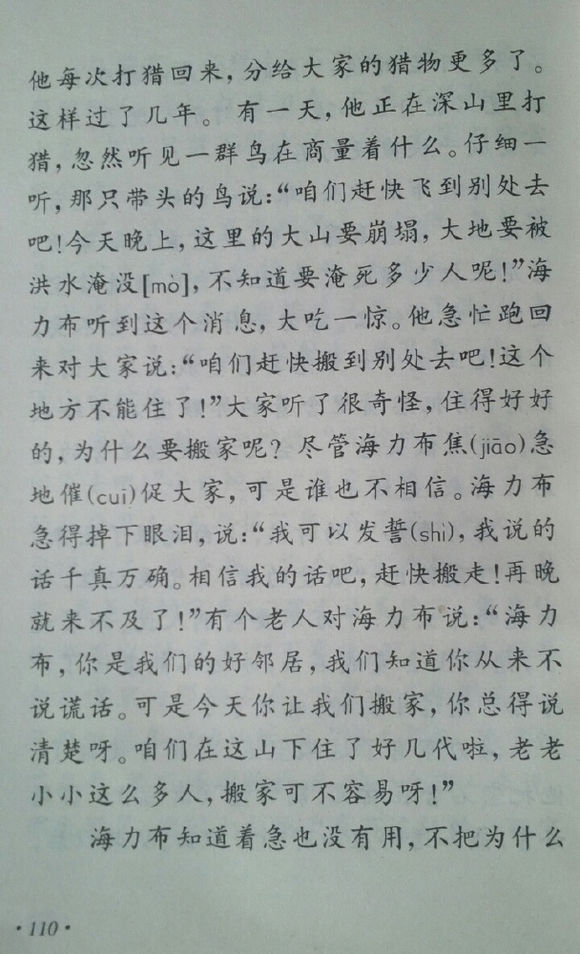 他每次打猎回来，分给大家的猎物更多了。
这样过了几年。 有一天，他正在深山里打
猎，忽然听见一群鸟在商量着什么。仔细一
听，那只带头的鸟说：“咱们赶快飞到别处去
吧！今天晚上，这里的大山要崩塌，大地要被
洪水淹没[mò]，不知道要淹死多少人呢！”海
力布听到这个消息，大吃一惊。他急忙跑回
来对大家说：“咱们赶快搬到别处去吧！这个
地方不能住了！”大家听了很奇怪，住得好好
的，为什么要搬家呢？尽管海力布焦(jiāo)急
地催(cuī)促大家，可是谁也不相信。海力布
急得掉下眼泪，说：“我可以发誓(shì)，我说的
话千真万确。相信我的话吧，赶快搬走！再晚
就来不及了！”有个老人对海力布说：“海力
布，你是我们的好邻居，我们知道你从来不
说谎话。可是今天你让我们搬家，你总得说
清楚呀。咱们在这山下住了好几代啦，老老
小小这么多人，搬家可不容易呀！”
海力布知道着急也没有用，不把为什么
·110·